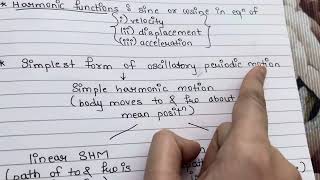 * Harmonic functions → sine or cosine in eqⁿ of
(i) velocity
(ii) displacement
(iii) acceleration
* Simplest form of oscillatory periodic motion
↓
Simple harmonic motion
(body moves to & fro about
mean positⁿ)
linear SHM
(path of to & fro is